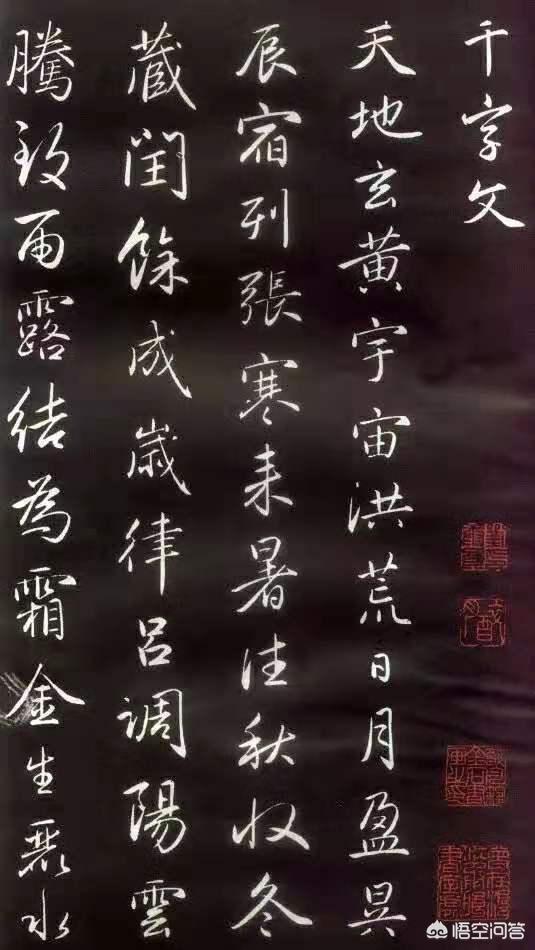 千字文
天地玄黄宇宙洪荒日月盈昃
辰宿列張寒来暑往秋收冬
藏閏餘成歲律呂調陽雲
騰致雨露結為霜金生麗水
悟空问答